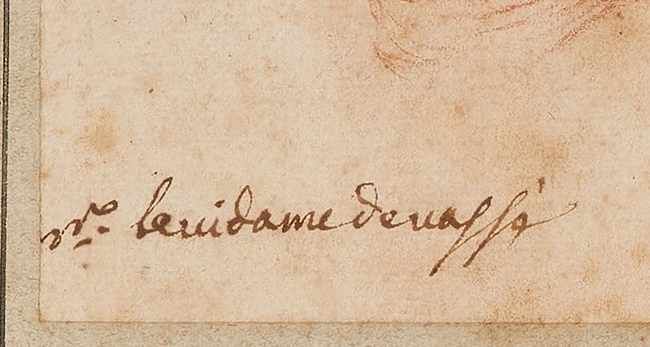 mr. levidame devassé